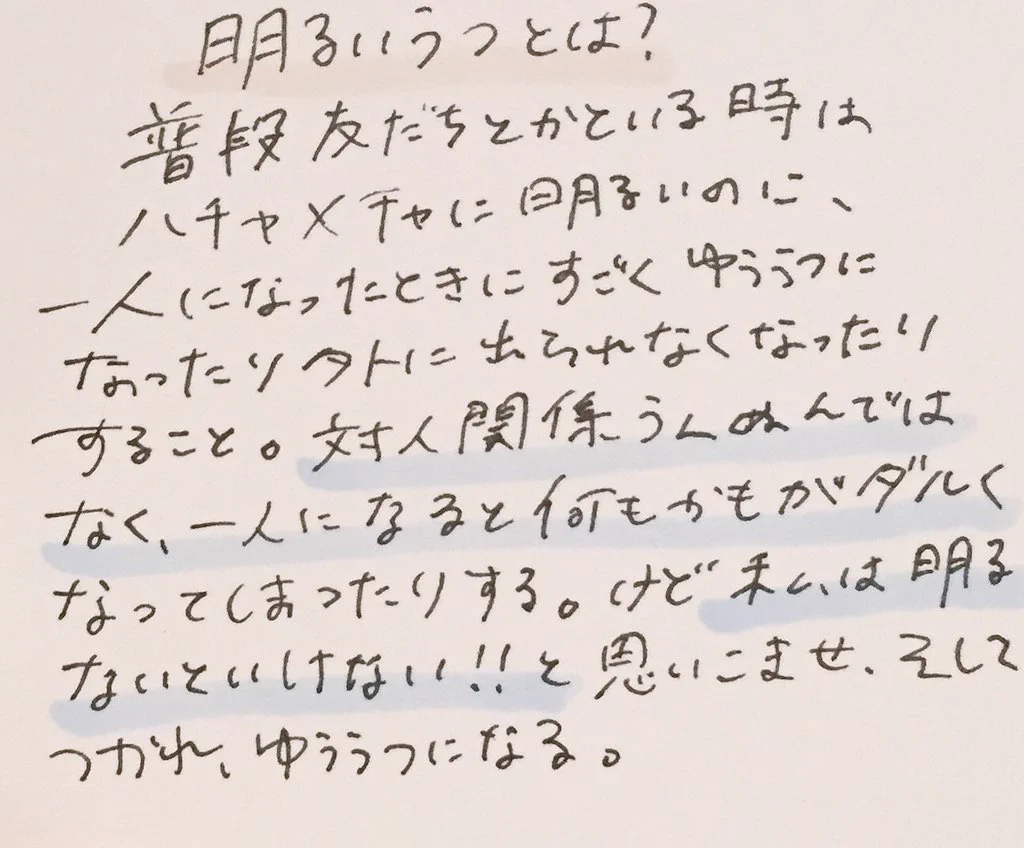 明るいうつとは?
普段友だちとかといる時は
ハチャメチャに明るいのに、
一人になったときにすごくゆううつに
なったりタトに出られなくなったり
すること。対人関係うんぬんでは
なく、一人になると何もかもがダルく
なってしまったりする。けど私は明る
ないといけない!!と思いこませ、そして
つかれ、ゆううつになる。